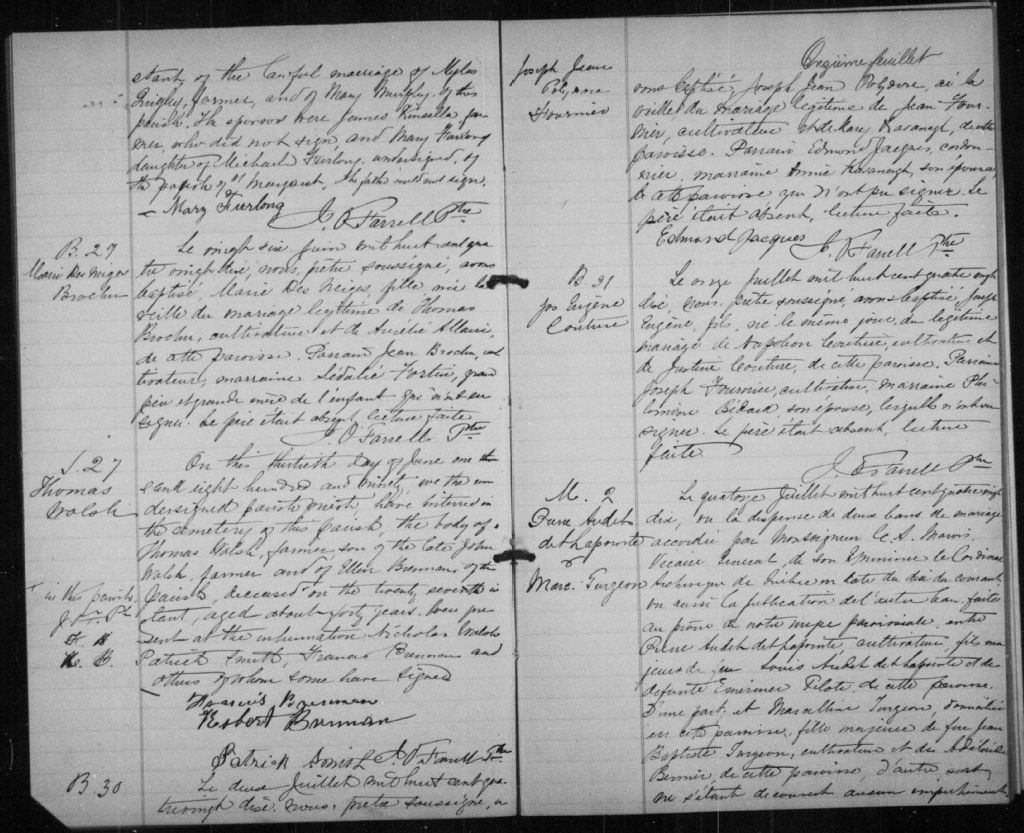 stant, of the lawful marriage of Myles
Quigley, farmer, and of Mary Murphy of this
parish. The sponsors were James Kinsella, far
mer, who did not sign and Mary Furlong
daughter of Michael Furlong, undersigned, of
the parish of St Margaret, the father could not sign.
Mary Furlong
J. O'Farrell Ptre
B. 29
Marie des Neiges
Brochu
Le vingt six Juin mil huit cent qua
tre vingt dix, nous, prêtre soussigné, avons
baptisé, Marie Des Neiges, fille née la
veille du mariage légitime de Thomas
Brochu, cultivateur et de Aurélie Allaire,
de cette paroisse. Parrain Jean Brochu, cul
tivateur, marraine Sédalie Fortin, grand
père et grande mère de l'enfant qui n'ont su
signer. Le père était absent, lecture faite
J. O'Farrell Ptre
S. 27
Thomas
Walsh
On this thirtieth day of June one thou
sand eight hundred and ninety, we the un
dersigned parish priest, have interred in
the cemetery of this parish, the body of
Thomas Walsh, farmer, son of the late John
Walsh, farmer and of Ellen Brennan, of the
parish, deceased on the twenty seventh in
stant, aged about forty years. Were pre
sent at the inhumation Nicholas Walsh
Patrick Smith, Francis Brennan and
others of whom some have signed
+ in this parish
F. B
R. B.
Francis Brennan
Robert Brennan
Patrick Smith J. O'Farrell Ptre
B. 30
Le deux Juillet mil huit cent qua
tre vingt dix, nous, prêtre soussigné, a
Onzième feuillet
Joseph Jean
Polydore
Fournier
vons baptisé, Joseph Jean Polydore, né la
veille du mariage légitime de Jean Four
nier, cultivateur et de Mary Kavanagh, de cette
paroisse. Parrain Edmond Jacques, cordon
nier, marraine Annie Kavanagh, son épouse,
de cette paroisse qui n'ont pu signer. Le
père était absent, lecture faite.
Edmond Jacques J. O'Farrell Ptre
B. 31
Jos Eugène
Couture
Le onze Juillet mil huit cent quatre vingt
dix, nous, prêtre soussigné, avons baptisé, Joseph
Eugène, fils, né le même jour, du légitime
mariage de Napoléon Couture, cultivateur et
de Justine Couture, de cette paroisse. Parrain
Joseph Fournier, cultivateur, marraine Phi
lomène Bédard, son épouse, lesquels n'ont su
signer. Le père était absent, lecture
faite.
J. O'Farrell Ptre
M. 2
Pierre Audet
dit Lapointe
&
Marc. Turgeon
Le quatorze Juillet mil huit cent quatre vingt
dix, vu la dispense de deux bans de mariage
accordée par Monseigneur C. A. Marois
Vicaire Général, de son Eminence le Cardinal
Archevêque de Québec en date du dix du courant,
vu aussi la publication de l'autre ban, faite
au prône de notre messe paroissiale, entre
Pierre Audet dit Lapointe, cultivateur, fils ma
jeur de feu Louis Audet dit Lapointe et de
défunte Emérence Pilote, de cette paroisse,
D'une part, et Marcelline Turgeon, domiciliée
en cette paroisse, fille majeure de feu Jean
Baptiste Turgeon, cultivateur et de Adélaïde
Bernier de cette paroisse, d'autre part,
ne s'étant découvert aucun empêchement